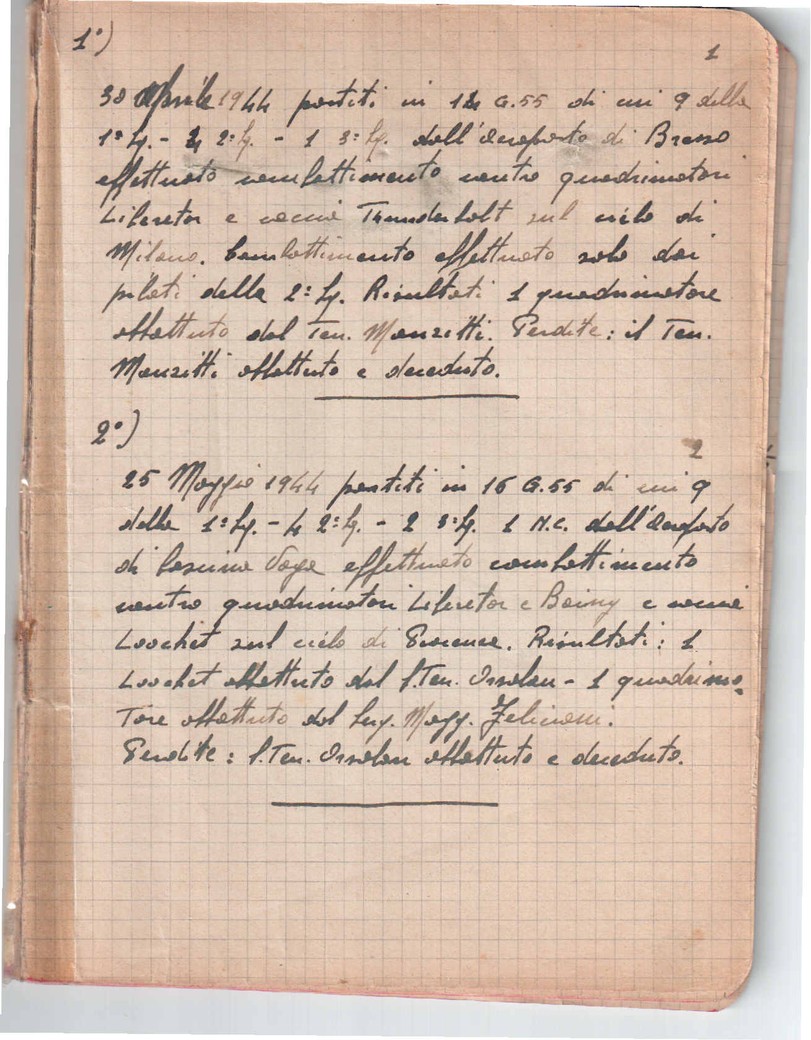 1°)
1
30 Aprile 1944 partiti in 14 G.55 di cui 9 della
1ª Sq. - 4 2ª Sq. - 1 3ª Sq. dall'aeroporto di Bresso
effettuato combattimento contro quadrimotori
Liberetor e caccia Thunderbolt sul cielo di
Milano. Combattimento effettuato solo dai
piloti della 2ª Sq. Risultati 1 quadrimotore
abbattuto dal Ten. Manzitti. Perdite: il Ten.
Manzitti abbattuto e deceduto.
2°)
2
25 Maggio 1944 partiti in 16 G.55 di cui 9
della 1ª Sq. - 4 2ª Sq. - 2 3ª Sq. 1 N.C. dall'aeroporto
di Cascina Vaga effettuato combattimento
contro quadrimotori Liberetor e Boing e caccia
Loochet sul cielo di Piacenza. Risultati: 1
Loochet abbattuto dal S.Ten. Orsolan - 1 quadrimo-
tore abbattuto dal Serg. Magg. Felicioni.
Perdite: S.Ten. Orsolan abbattuto e deceduto.